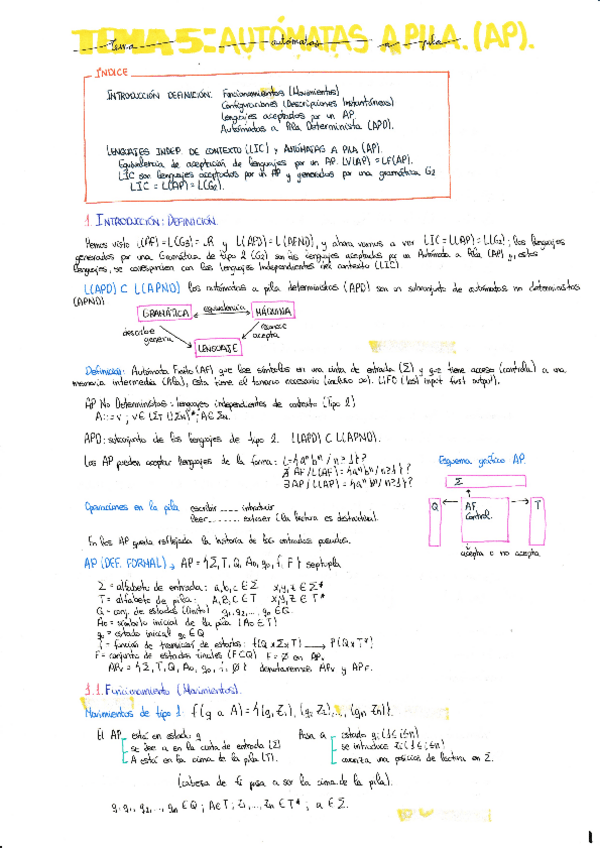 TEMA 5: AUTÓMATAS A PILA. (AP).
Tema autómatas a pila
ÍNDICE
INTRODUCCIÓN DEFINICIÓN: Funcionamientos (Movimientos)
Configuraciones (Descripciones Instantáneas)
Lenguajes aceptados por un AP.
Autómatas a Pila Determinista (APD).
LENGUAJES INDEP. DE CONTEXTO (LIC) y AUTÓMATAS A PILA (AP).
Equivalencia de aceptación de lenguajes por un AP. LV(AP) = LF(AP).
LIC son lenguajes aceptados por un AP y generados por una gramática G2
LIC = L(AP) = L(G2).
1. INTRODUCCIÓN: DEFINICIÓN.
Hemos visto L(AF) = L(G3) = R y L(AFD) = L(AFND), y ahora vamos a ver LIC = L(AP) = L(G2); los lenguajes
generados por una Gramática de tipo 2 (G2) son los lenguajes aceptados por un Autómata a Pila (AP) y, estos
lenguajes, se corresponden con los Lenguajes Independientes del contexto (LIC)
L(APD) ⊂ L(APND) los autómatas a pila deterministas (APD) son un subconjunto de autómatas no deterministas
(APND)
GRAMÁTICA equivalencia MÁQUINA
describe genera reconoce acepta
LENGUAJE
Definición: Autómata Finito (AF) que lee símbolos en una cinta de entrada (Σ) y que tiene acceso (controla) a una
memoria intermedia (Pila), esta tiene el tamaño necesario (incluso ∞). LIFO (last input first output).
AP No Deterministas: lenguajes independientes de contexto (Tipo 2)
A::= v; v ∈ (ΣT ∪ ΣN)*; A ∈ ΣN.
APD: subconjunto de los lenguajes de tipo 2. L(APD) ⊂ L(APND).
Los AP pueden aceptar lenguajes de la forma: L = {aⁿbⁿ / n ≥ 1}?
∄ AF / L(AF) = {aⁿbⁿ / n≥1}?
∃ AP / L(AP) = {aⁿbⁿ / n≥1}?
Esquema gráfico AP.
Σ
Q AF control. T
acepta o no acepta
Operaciones en la pila escribir introducir
leer extraer (la lectura es destructiva).
En los AP queda reflejada la historia de las entradas pasadas.
AP (DEF. FORMAL) → AP = {Σ, T, Q, A0, q0, f, F} séptupla
Σ = alfabeto de entrada: a, b, c ∈ Σ x, y, z ∈ Σ*
T = alfabeto de pila: A, B, C ∈ T X, Y, Z ∈ T*
Q = conj. de estados (finito) q1, q2, ..., qn ∈ Q.
A0 = símbolo inicial de la pila (A0 ∈ T)
q0 = estado inicial q0 ∈ Q
f = función de transición de estados: f(Q x Σ x T) → P(Q x T*)
F = conjunto de estados finales (F ⊂ Q) F = ∅ en APv
APv = {Σ, T, Q, A0, q0, f, ∅} denotaremos APv y APF.
1.1. Funcionamiento (Movimientos).
Movimientos de tipo 1: f(q a A) = {(q1 Z1), (q2 Z2), ..., (qn Zn)}.
El AP está en estado q Pasa a estado qi (1 ≤ i ≤ n)
se lee a en la cinta de entrada (Σ) se introduce Zi (1 ≤ i ≤ n)
A está en la cima de la pila (T). avanza una posición de lectura en Σ.
(cabeza de Zi pasa a ser la cima de la pila).
q, q1, q2, ..., qn ∈ Q; A ∈ T; Z1, ..., Zn ∈ T*; a ∈ Σ.
1